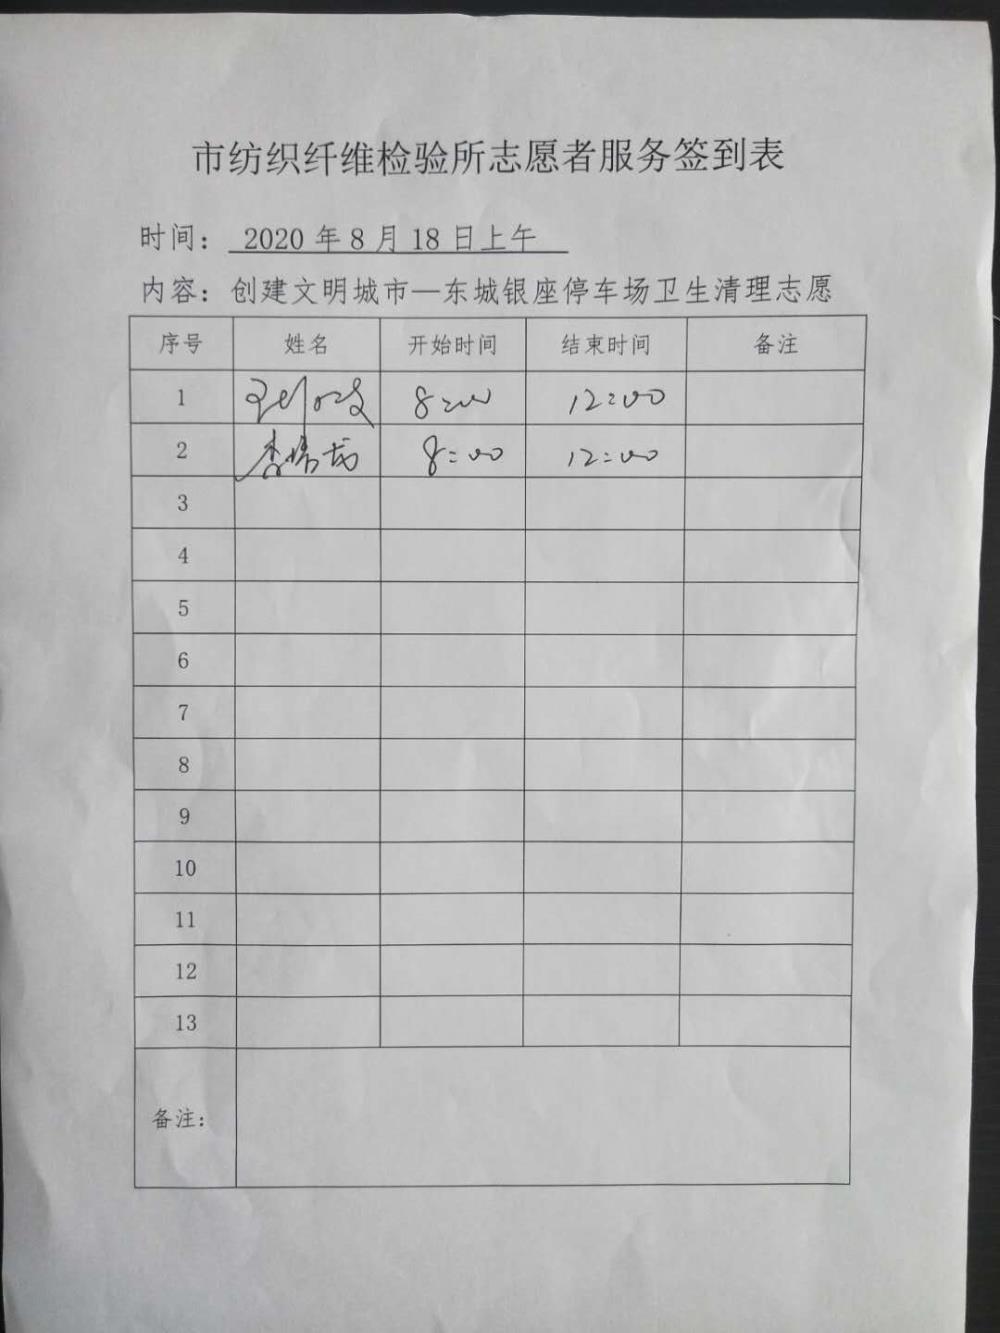 市纺织纤维检验所志愿者服务签到表
时间： 2020 年 8 月 18 日上午
内容：创建文明城市—东城银座停车场卫生清理志愿
序号 姓名 开始时间 结束时间 备注
1 8:00 12:00
2 李 8:00 12:00
3
4
5
6
7
8
9
10
11
12
13
备注：